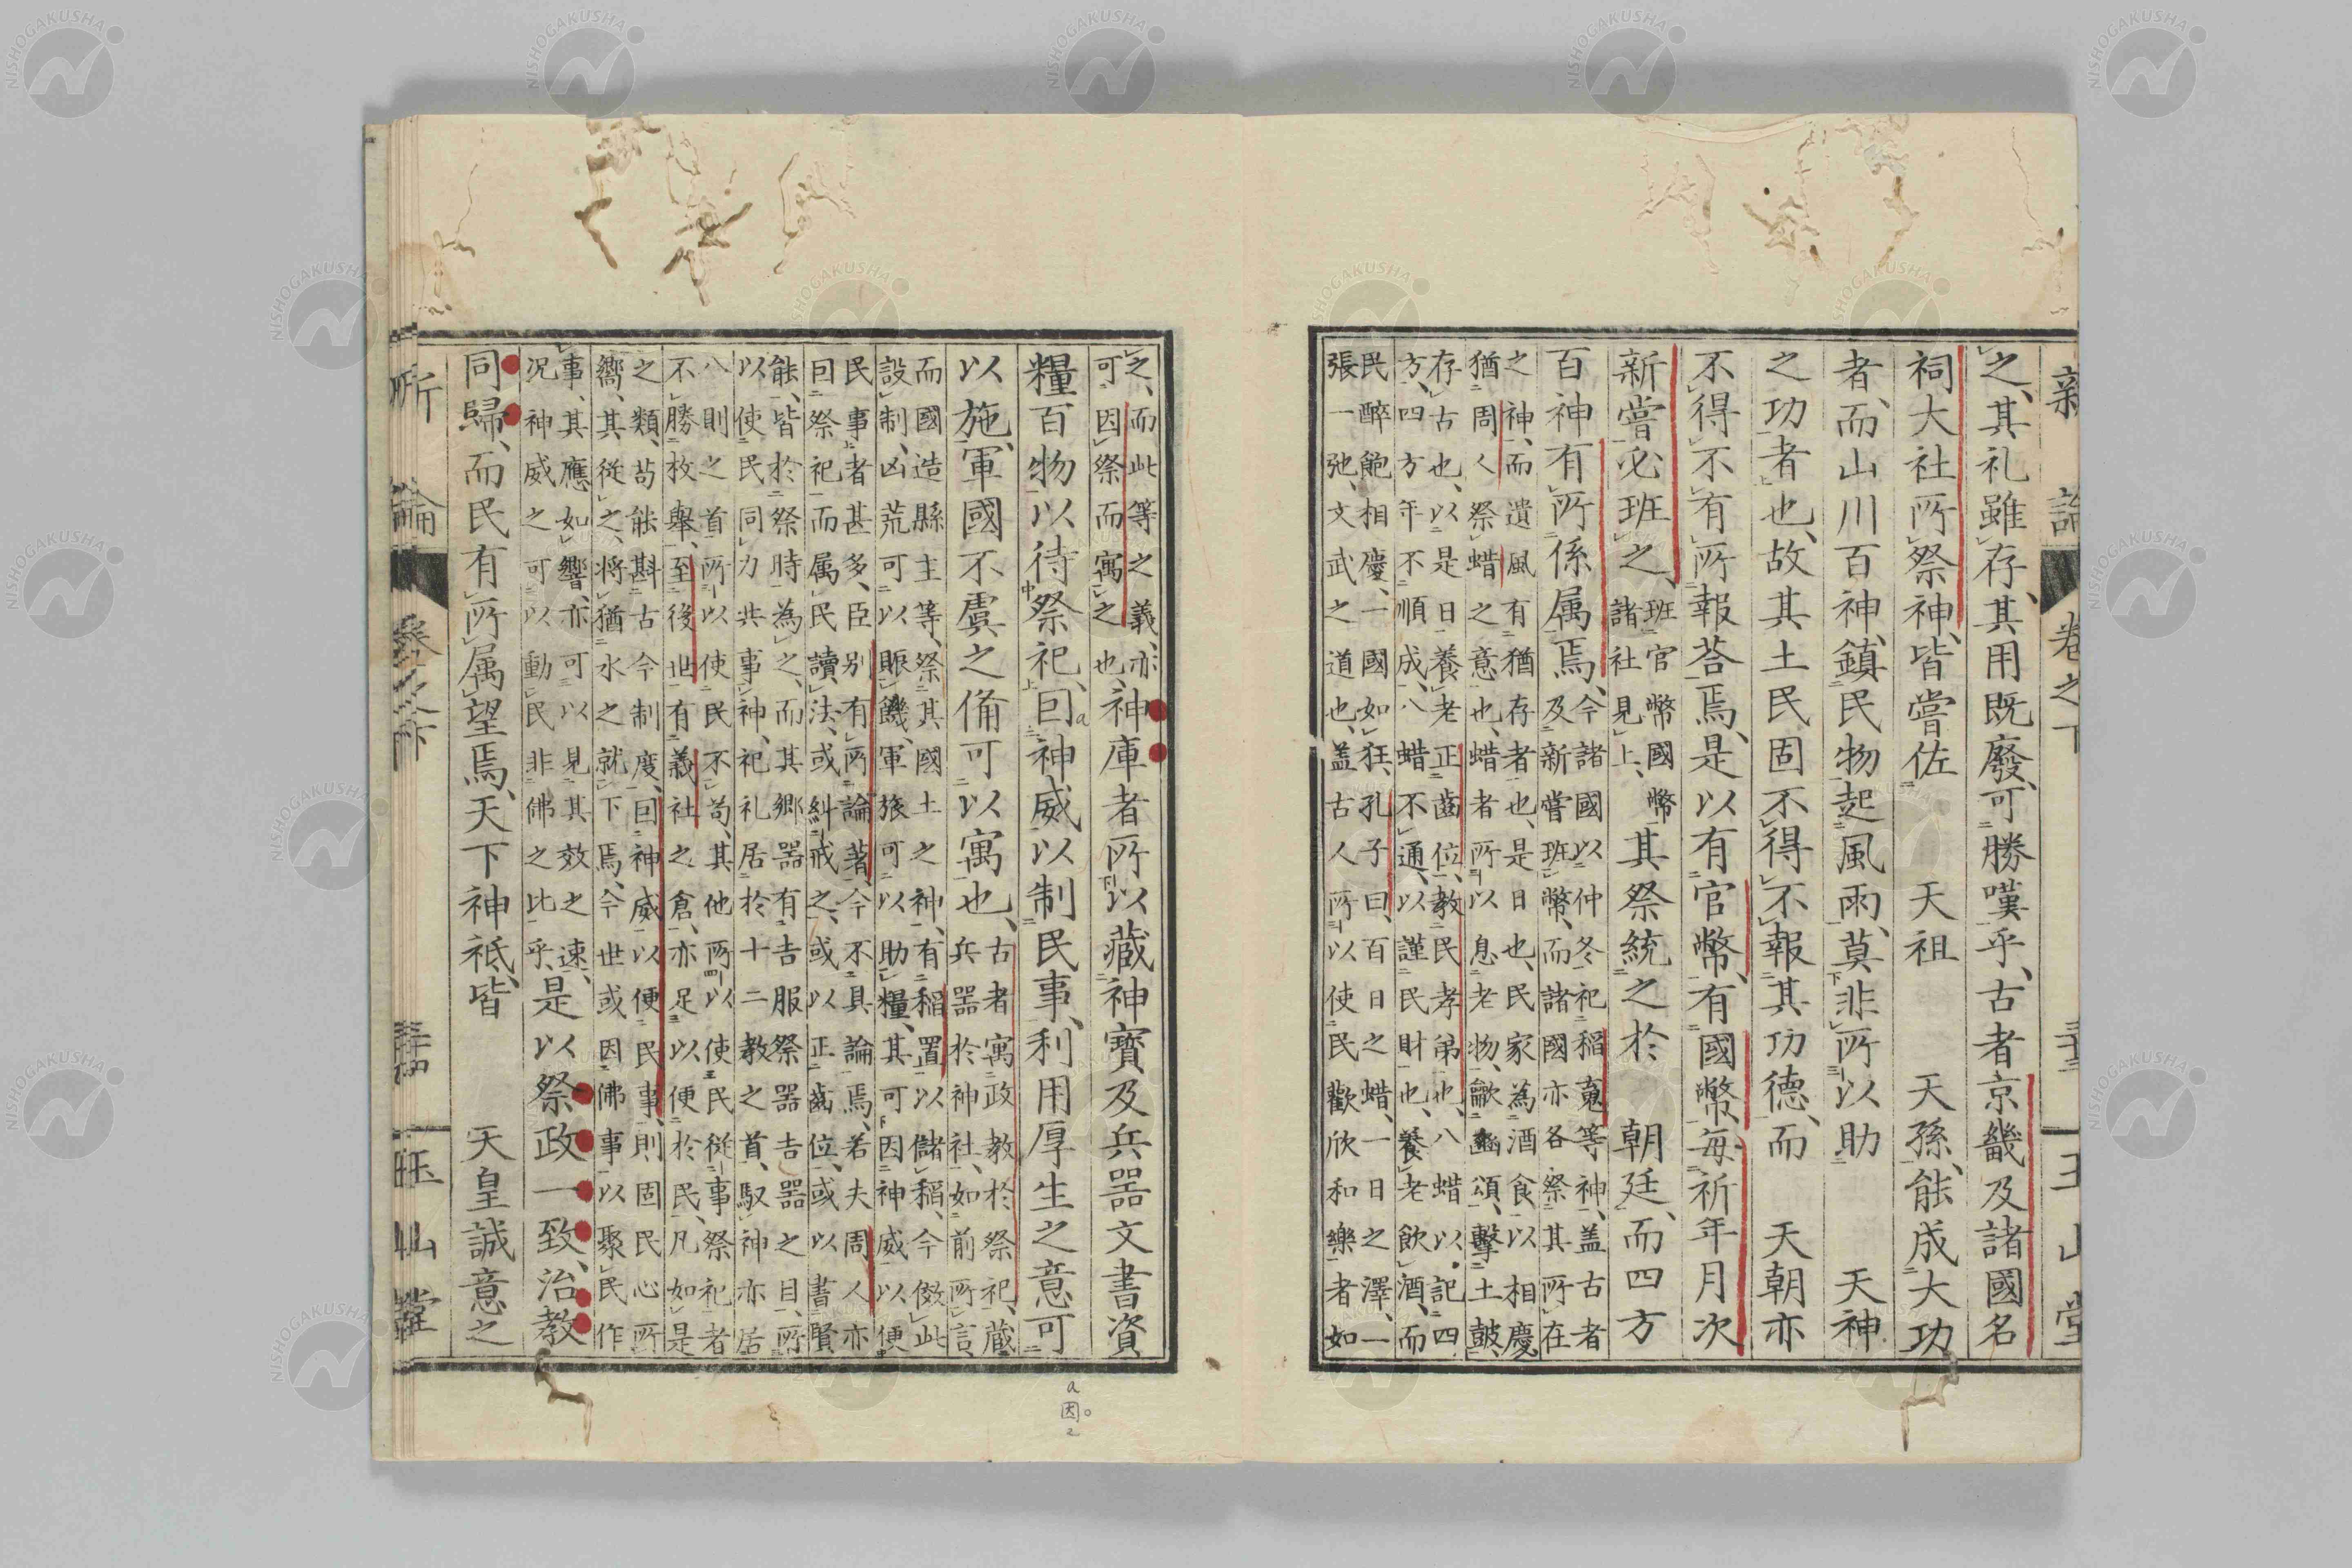 新論 卷之下 玉山堂
之、其礼雖存、其用既廢、可勝嘆乎、古者京畿及諸國名
祠大社所祭神、皆嘗佐 天祖 天孫、能成大功
者、而山川百神、鎮民物起風雨、莫非所以助 天神
之功者也、故其土民固不得不報其功德、而 天朝亦
不得不有所報荅焉、是以有官幣、有國幣、毎祈年月次
新嘗必班之、
班官幣國幣
諸社見上、
其祭統之於 朝廷、而四方
百神有所係属焉、
今諸國以仲冬祀稲蒐等神、盖古者
及新嘗班幣、而諸國亦各祭其所在
之神、而遺風有猶存者也、是日也、民家為酒食以相慶
猶周人祭蜡之意也、蜡者所以息老物、龡豳頌、擊土皷、
存古也、以是日養老正齒位、教民孝弟也、八蜡以記四
方、四方年不順成、八蜡不通、以謹民財也、養老飲酒、而
民醉飽相慶、一國如狂、孔子曰、百日之蜡、一日之澤、一
張一弛、文武之道也、盖古人所以使民歡欣和樂者如
之、而此等之義、亦
可因祭而寓之也、
神庫者所以藏神寶及兵器文書資
糧百物以待祭祀、囙神威以制民事、利用厚生之意可
以施、軍國不虞之備可以寓也、
古者寓政教於祭祀、蔵
兵器於神社、如前所言、
而國造縣主等、祭其國土之神、有稲置以儲稲、今倣此
設制、凶荒可以賑饑、軍旅可以助糧、其可因神威以便
民事者甚多、臣別有所論著、今不具論焉、若夫周人亦
囙祭祀而属民讀法、或糾戒之、或以正齒位、或以書賢
能、皆於祭時為之、而其郷器有吉服祭器吉器之目、所
以使民同力共事神、祀礼居於十二教之首、馭神亦居
八則之首、所以使民不苟、其他所以使民從事祭祀者
不勝枚舉、至後世有義社之倉、亦足以便於民、凡如是
之類、苟能斟古今制度、囙神威以便民事、則固民心所
嚮、其從之、將猶水之就下焉、今世或因佛事以聚民作
事、其應如響、亦可以見其效之速、
况神威之可以動民非佛之比乎、
是以祭政一致、治教
同歸、而民有所属望焉、天下神祗、皆 天皇誠意之
a 因 2
NISHOGAKUSHA